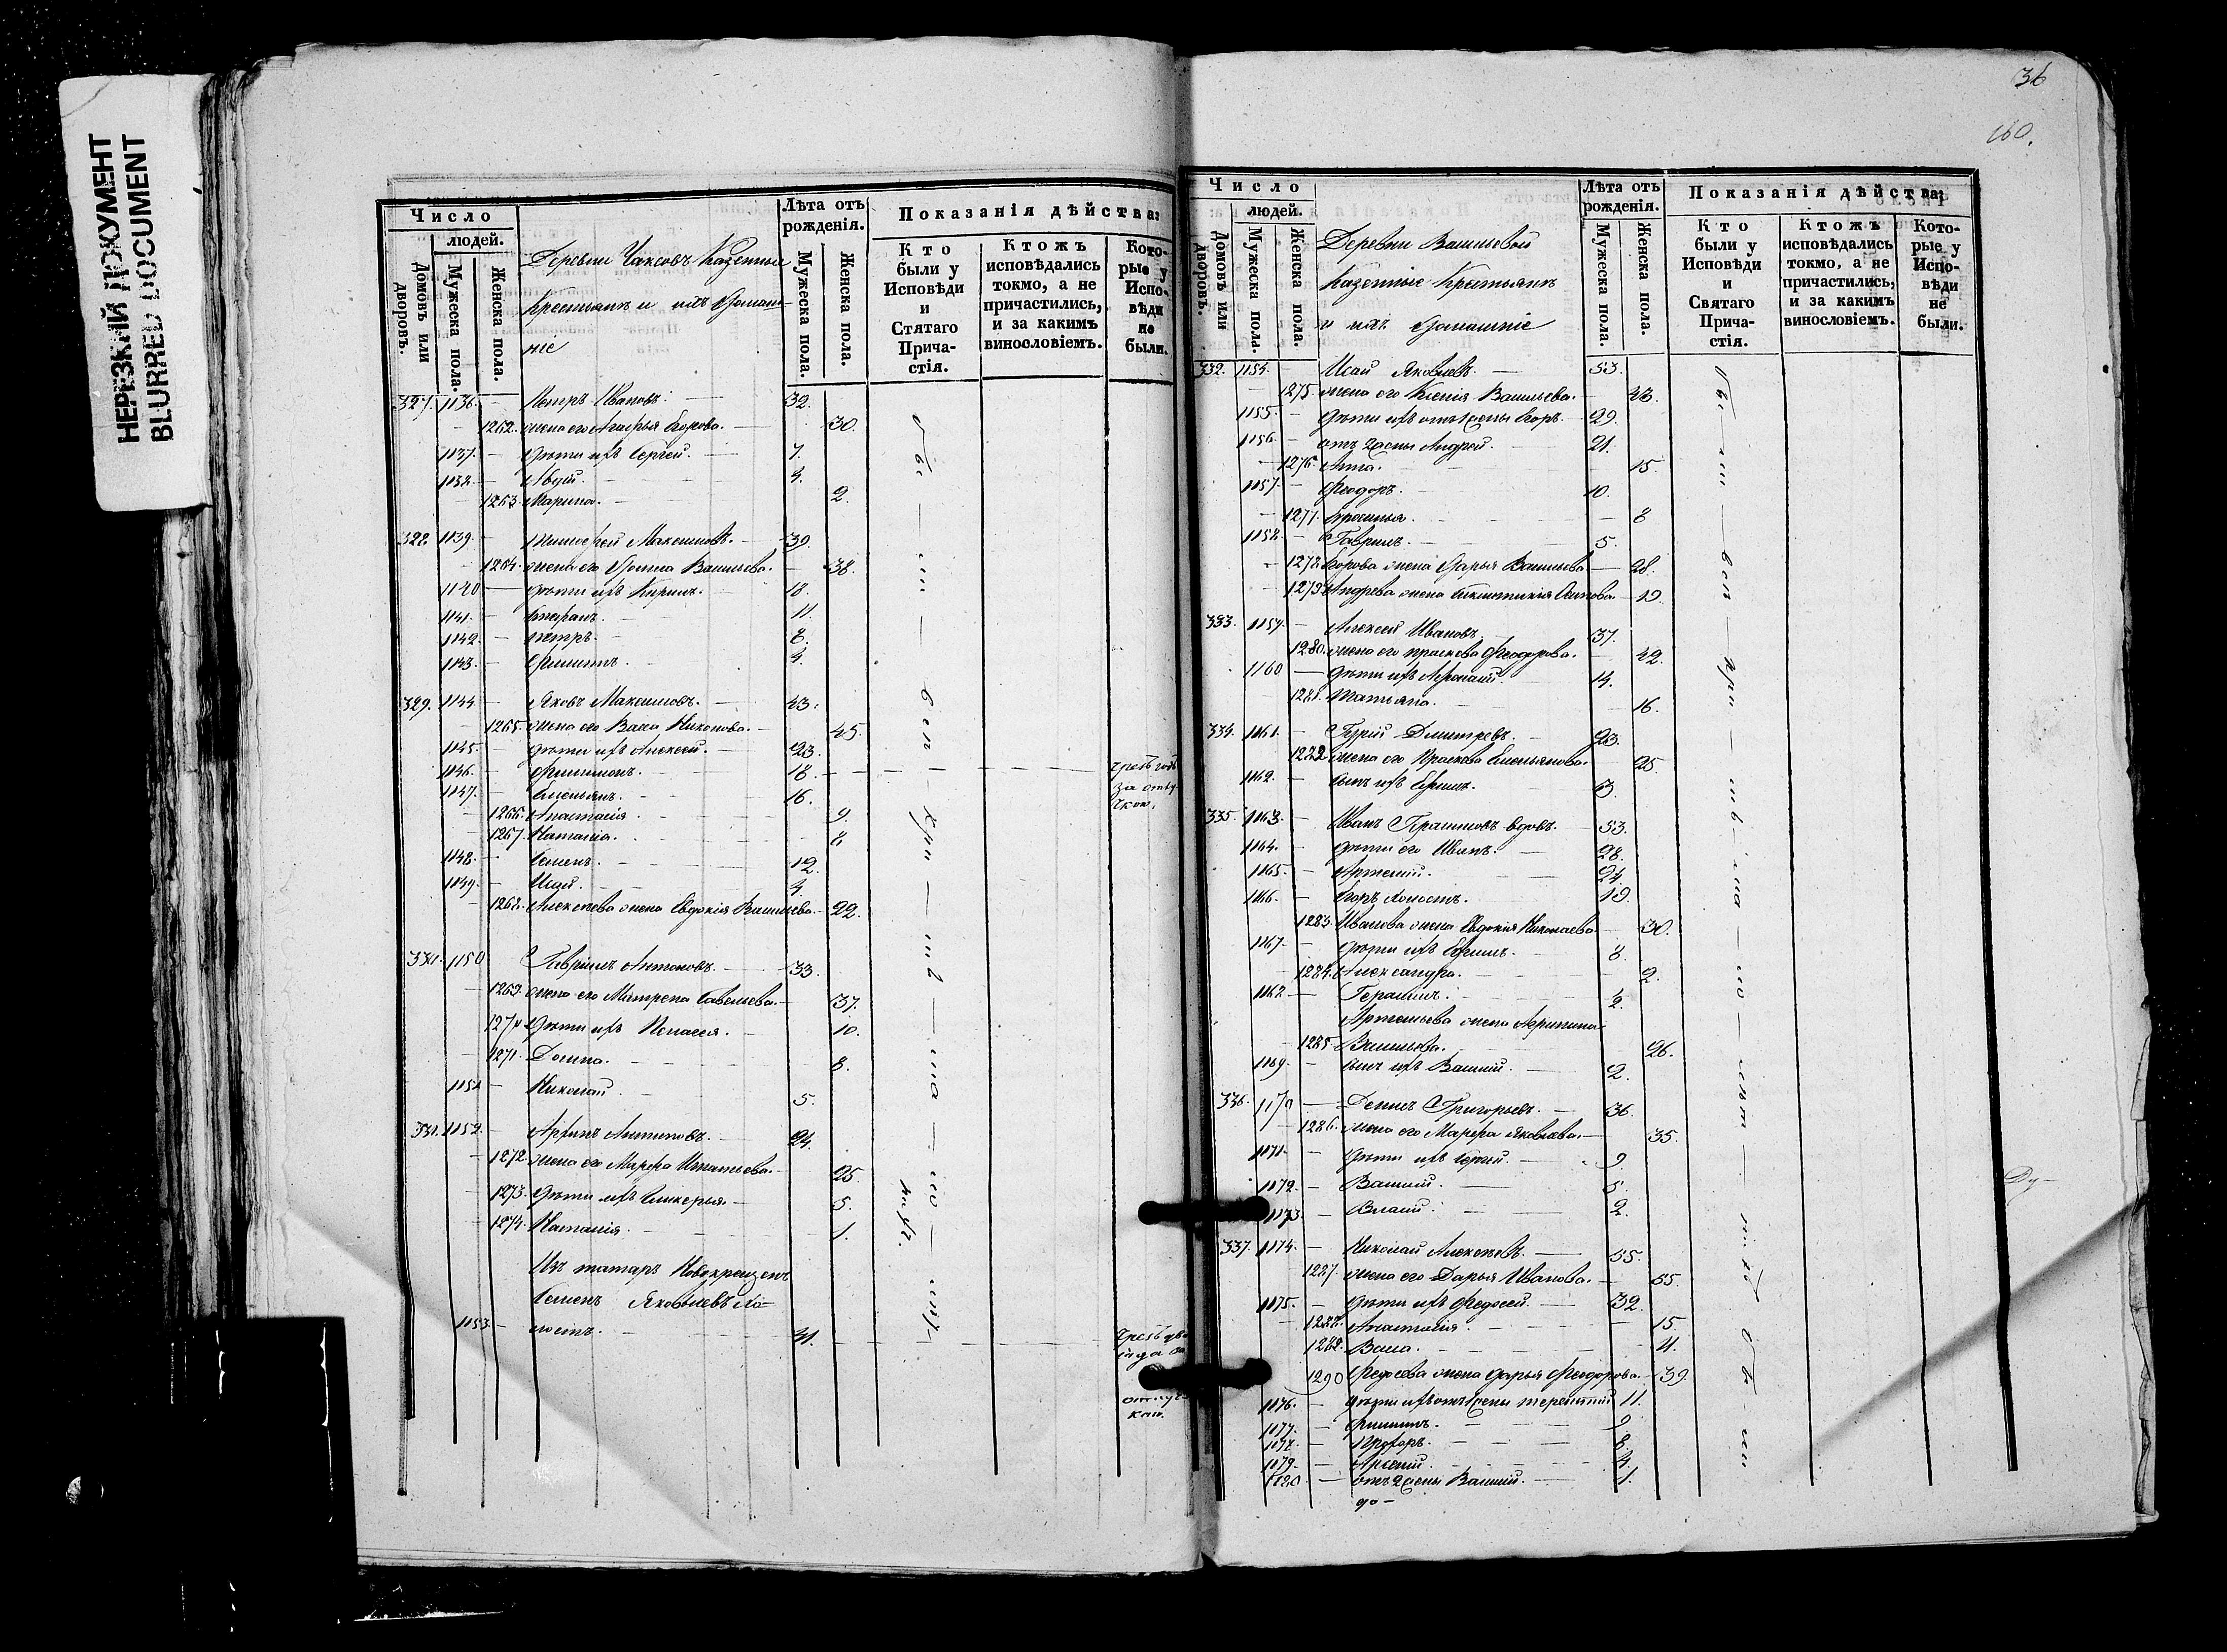 НЕРЕЗКИЙ ДОКУМЕНТ
BLURRED DOCUMENT
Число
людей.
Домовъ или дворовъ.
Мужеска пола.
Женска пола.
Деревни Чаксовъ Казенные
крестьянъ и ихъ домаш-
ніе
Лѣта отъ рожденія.
Мужеска пола.
Женска пола.
Показанія дѣйства:
Кто были у Исповѣди и Стятаго Прича-стія.
Ктожъ исповѣдались токмо, а не причастились, и за какимъ винословіемъ.
Кото-рые у Испо-вѣди не были.
327. 1136. Петръ Ивановъ. 32.
1262. жена его Егорова. 30.
1137. дѣти ихъ Сергей. 7.
1138. 4.
1263. Марина. 2.
328. 1139. Тимофей Максимовъ. 39.
1264. жена его Домна Васильева. 38.
1140 дѣти ихъ Кирилъ. 18.
1141. Стефанъ. 11.
1142. петръ. 8.
1143. Филиппъ. 4.
329. 1144. Яковъ Максимовъ. 43.
1265. жена его Васса Никонова. 45.
1145. дѣти ихъ Алексей. 23.
1146. Филимонъ. 18.
1147. Емельянъ. 16.
1266. Анастасія. 9.
1267. Наталія. 8
1148. Семенъ. 12.
1149. Исай. 4.
1268. Алексеева жена Евдокія Васильева. 22.
330. 1150 Гаврилъ Антоновъ. 33.
1269. жена его Матрена Савельева. 37.
1270 дѣти ихъ Пелагея. 10.
1271. Домна. 8.
1151 Николай. 5.
331. 1152. Антиповъ. 24.
1272. жена его Марфа Игнатьева. 25.
1273. дѣти ихъ Гликерья. 5.
1274. Наталія. 1.
Изъ татаръ Новокрещенъ
Семенъ Яковлевъ хо-
1153. лостъ. 41.
36
160.
Число
людей.
Домовъ или дворовъ.
Мужеска пола.
Женска пола.
Деревни Васильевой
Казенные Крестьянъ
и ихъ домашніе
Лѣта отъ рожденія.
Мужеска пола.
Женска пола.
Показанія дѣйства:
Кто были у Исповѣди и Святаго Прича-стія.
Ктожъ исповѣдались токмо, а не причастились, и за какимъ винословіемъ.
Кото-рые у Испо-вѣди не были.
332. 1154. Исай Яковлевъ. 53.
1275. жена его Ксенія Васильева. 43.
1155. дѣти ихъ отъ 1 жены Егоръ. 29.
1156. отъ 2 жены Андрей. 21.
1276. Анна. 15.
1157. Феодоръ. 10.
1277. 8
1158. Гаврилъ. 5.
1278. Егорова жена Дарья Васильева 28.
1279. Андреева жена Осипова. 19.
333. 1159. Алексей Ивановъ. 37.
1280. жена его праскева Феодорова. 42.
1160 дѣти ихъ 14.
1281. Татьяна. 16.
334. 1161. Гурій Димитревъ. 23.
1282 жена его Праскева Емельянова. 25.
1162. сынъ ихъ Ефимъ. 3.
335. 1163. Иванъ вдовъ. 53.
1164. дѣти его Иванъ. 28.
1165. Артемій. 24.
1166. Егоръ холостъ. 19.
1283. Иванова жена Евдокія Николаева 30.
1167. дѣти ихъ Ефимъ. 8.
1284. Александра. 2.
1168 Герасимъ. 2.
Артемьева жена Агрипина
1285. Васильева. 26.
1169. сынъ ихъ Василій. 2.
336. 1170 Денисъ Григорьевъ. 36.
1286. жена его Марфа Яковлева. 35.
1171. дѣти ихъ Сергей. 9.
1172. Василій. 5.
1173. Власій. 2.
337. 1174. Николай Алексеевъ. 55.
1287. жена его Дарья Иванова. 55.
1175. дѣти ихъ Федосей. 32.
1288. Анастасія. 15.
1289. Васса. 11.
1290 Федосеева жена дарья Феодорова. 39
1176. дѣти ихъ отъ 1 жены терентий 11.
1177. Филиппъ. 9
1178. Прохоръ. 8.
1179. Арсений. 4.
1180 отъ 2 жены Василий. 1.